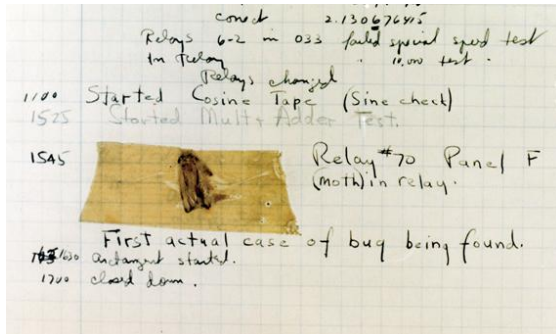 conect 2.130676415
Relays 6-2 in 033 failed special speed test
In Relay 10.000 test.
Relays changed
1100 Started Cosine Tape (Sine check)
1525 Started Mult + Adder Test.
1545 Relay #70 Panel F
(moth) in relay.
First actual case of bug being found.
1630 antangent started.
1700 closed down.